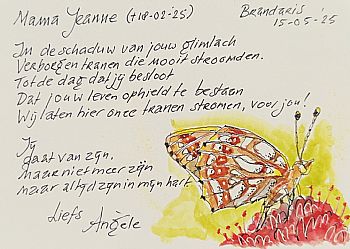 Mama Jeanne (+18-02-25)
Brandaris
15-05-'25
In de schaduw van jouw glimlach
Verborgen tranen die nooit stroomden.
Tot de dag dat jij besloot
Dat jouw leven ophield te bestaan
Wij laten hier onze tranen stromen, voor jou!
Jij
gaat van zijn,
naar niet meer zijn
maar altijd zijn in mijn hart.
Liefs
Angèle